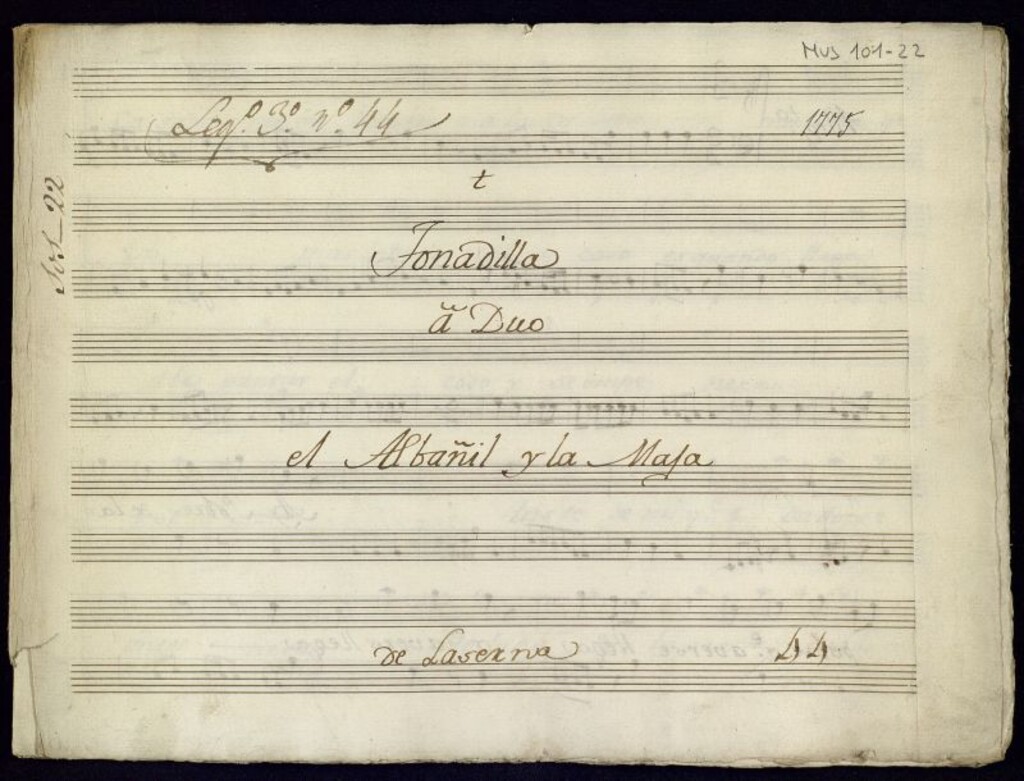 MUS 101-22
Leg.º 3.º n.º 44
1775
t
Tonadilla
â Duo
el Albañil y la Maja
de Laserna
44